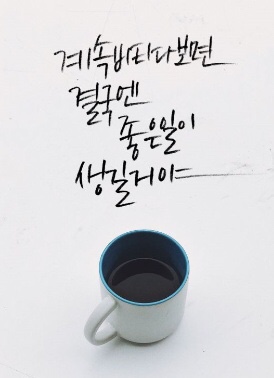 계속버티다보면
결국엔
좋은일이
생길거야